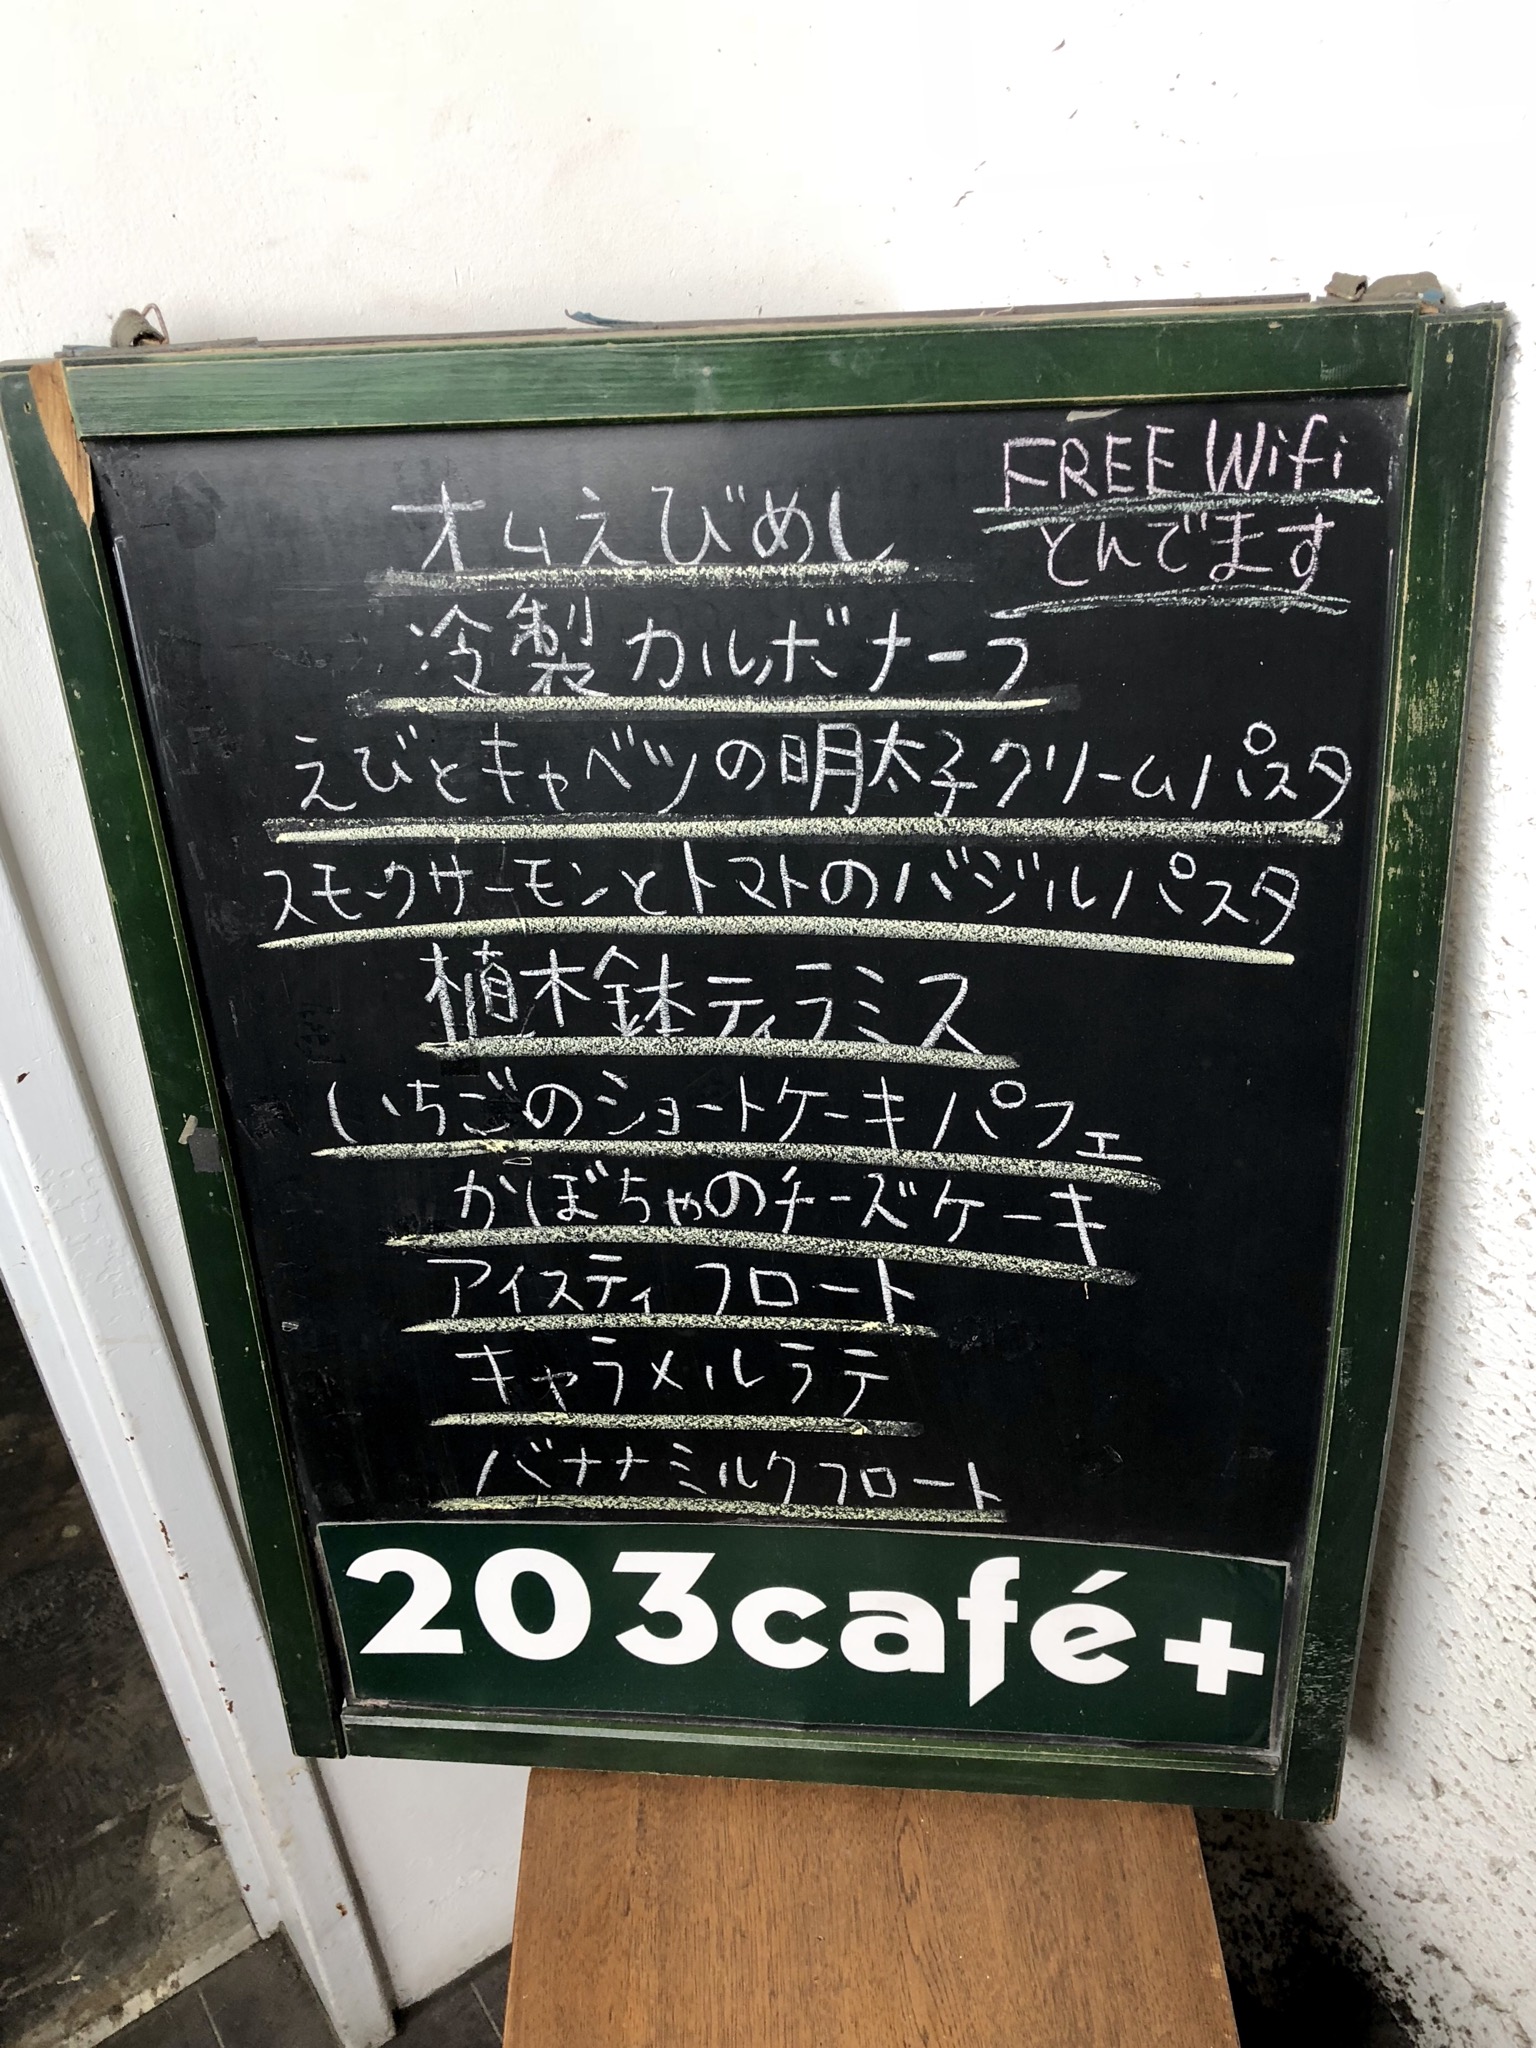 FREE Wifi
とんでます
オムえびめし
冷製カルボナーラ
えびとキャベツの明太子クリームパスタ
スモークサーモンとトマトのバジルパスタ
植木鉢ティラミス
いちごのショートケーキパフェ
かぼちゃのチーズケーキ
アイスティフロート
キャラメルラテ
バナナミルクフロート
203café+